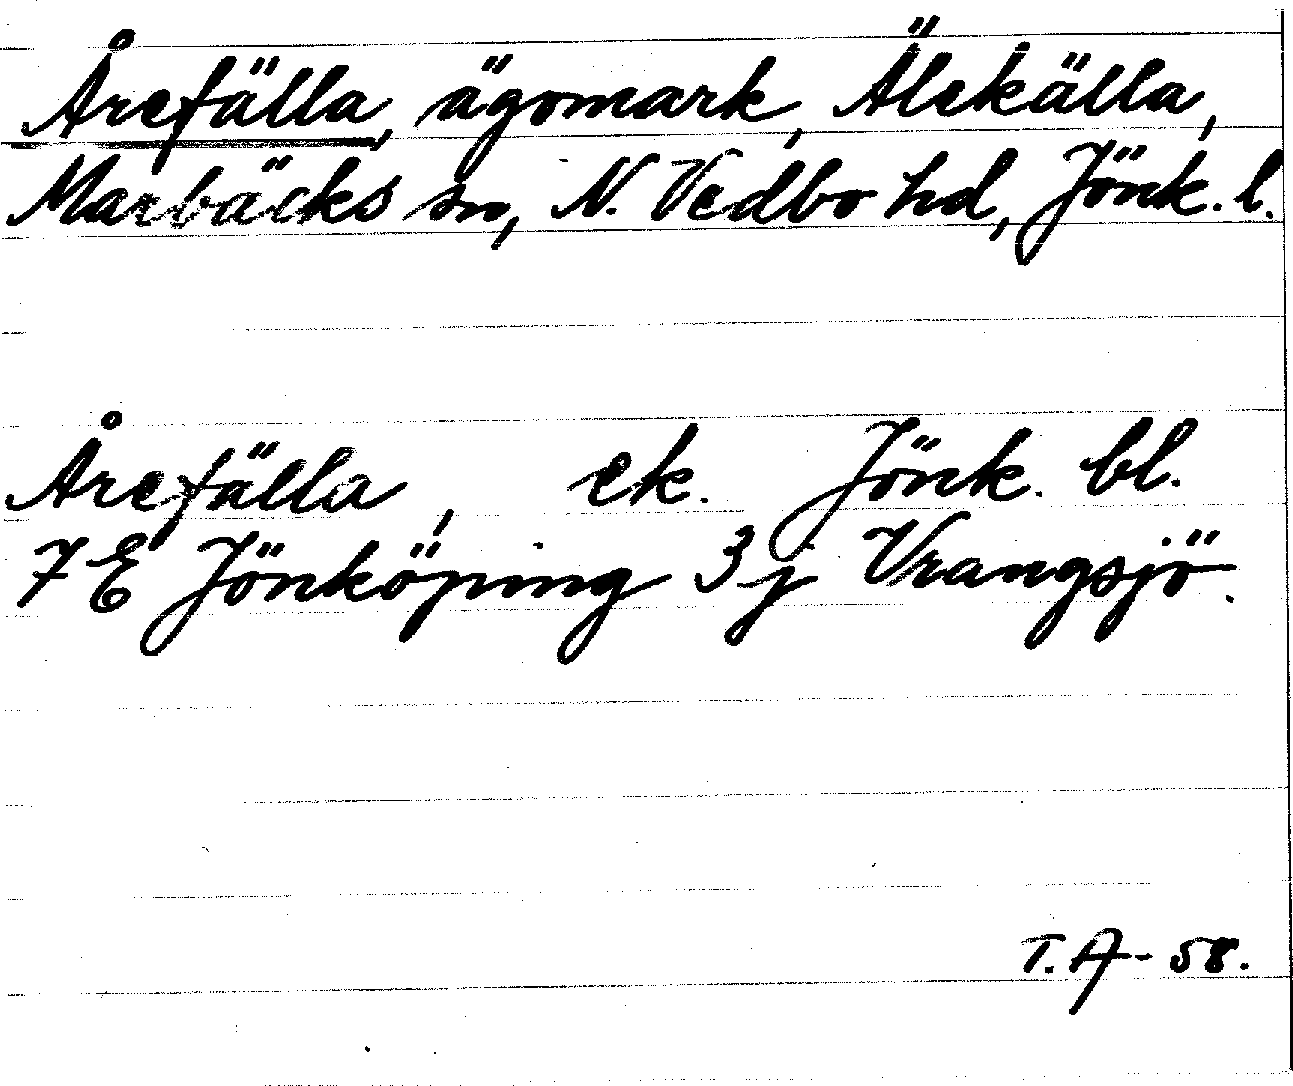 Årefälla, ägomark, Älekälla,
Marbäcks sn, N. Vedbo hd, Jönk. l.
Årefälla, ek. Jönk. bl.
7E Jönköping 3j Vrangsjö.
T.A-58.